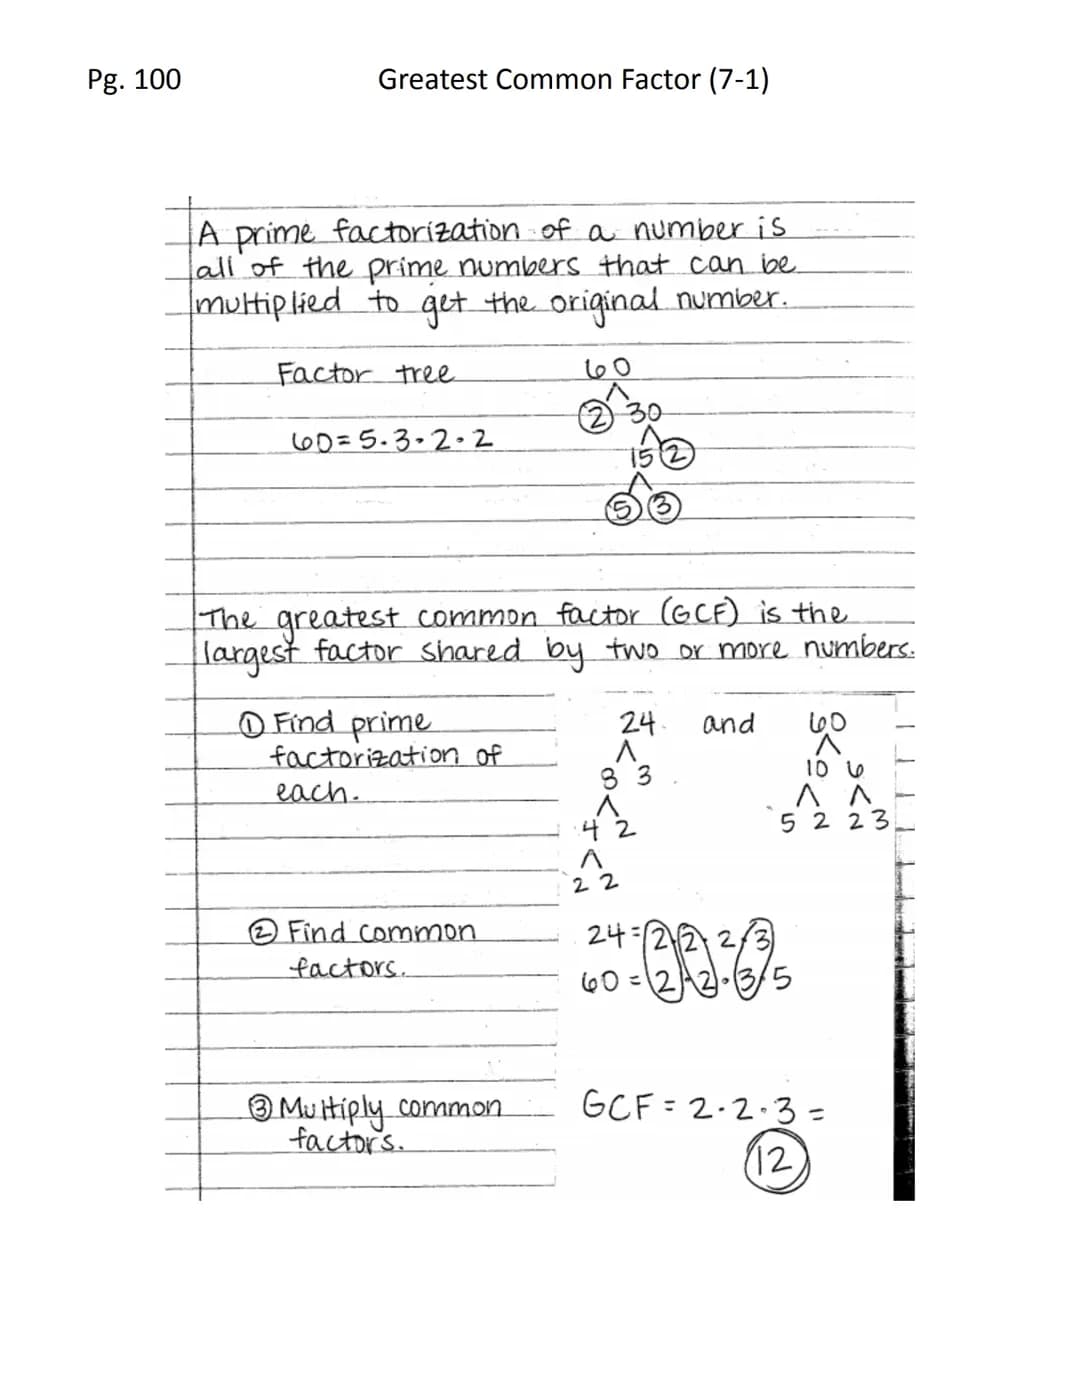 Pg. 100 Greatest Common Factor (7-1)
A prime factorization of a number is
all of the prime numbers that can be
multiplied to get the original number.
Factor tree 60
2 30
60 = 5 · 3 · 2 · 2
15 2
5 3
The greatest common factor (GCF) is the
largest factor shared by two or more numbers.
① Find prime 24 and 60
factorization of 8 3 10 6
each.
4 2 5 2 2 3
2 2
② Find common 24 = 2 · 2 · 2 · 3
factors. 60 = 2 · 2 · 3 · 5
③ Multiply common GCF = 2 · 2 · 3 =
factors. 12